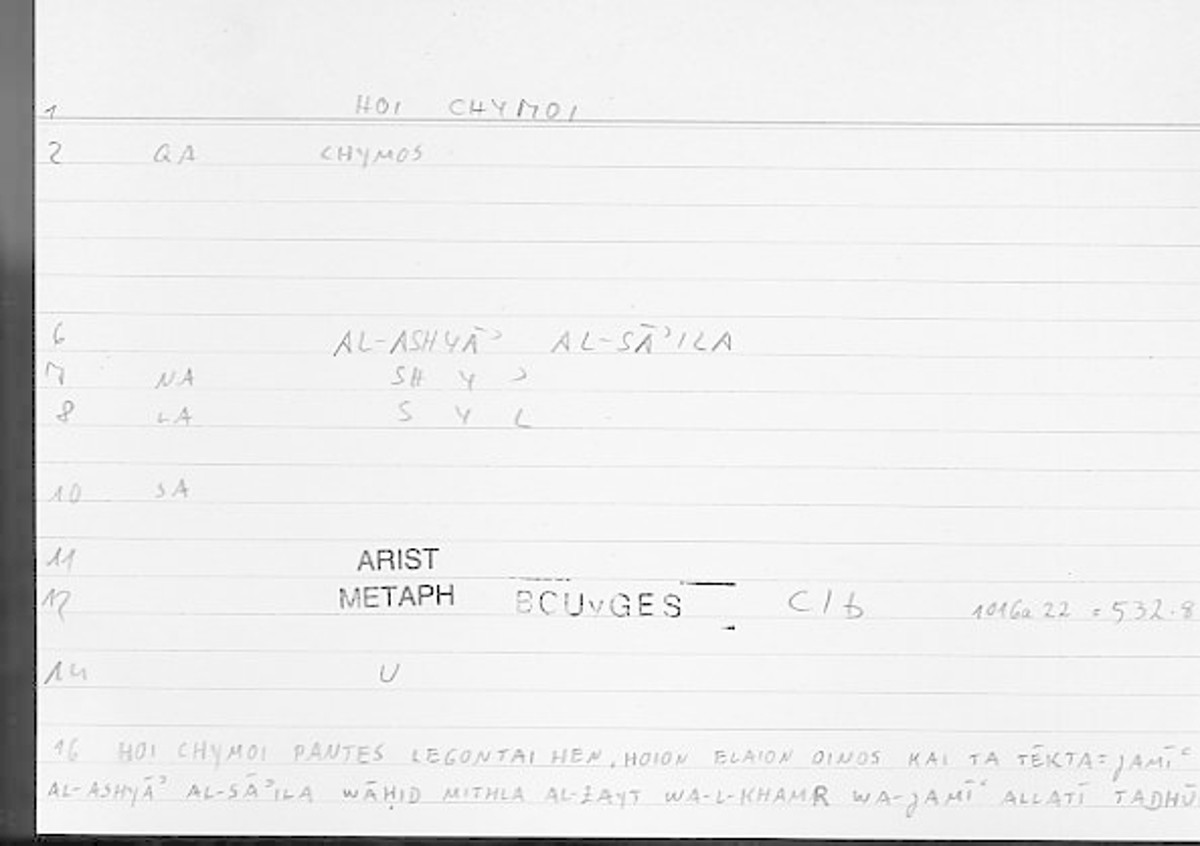 1 HOI CHYMOI
2 QA CHYMOS
6 AL-ASHYĀʾ AL-SĀʾILA
7 NA SH Y ʾ
8 LA S Y L
10 SA
11 ARIST
12 METAPH BOUvGES C1b 1016a22 = 532.8
14 U
16 HOI CHYMOI PANTES LEGONTAI HEN, HOION ELAION OINOS KAI TA TĒKTA = JAMĪʿ
AL-ASHYĀʾ AL-SĀʾILA WĀḤID MITHLA AL-ZAYT WA-L-KHAMR WA-JAMĪʿ ALLATĪ TADHŪ